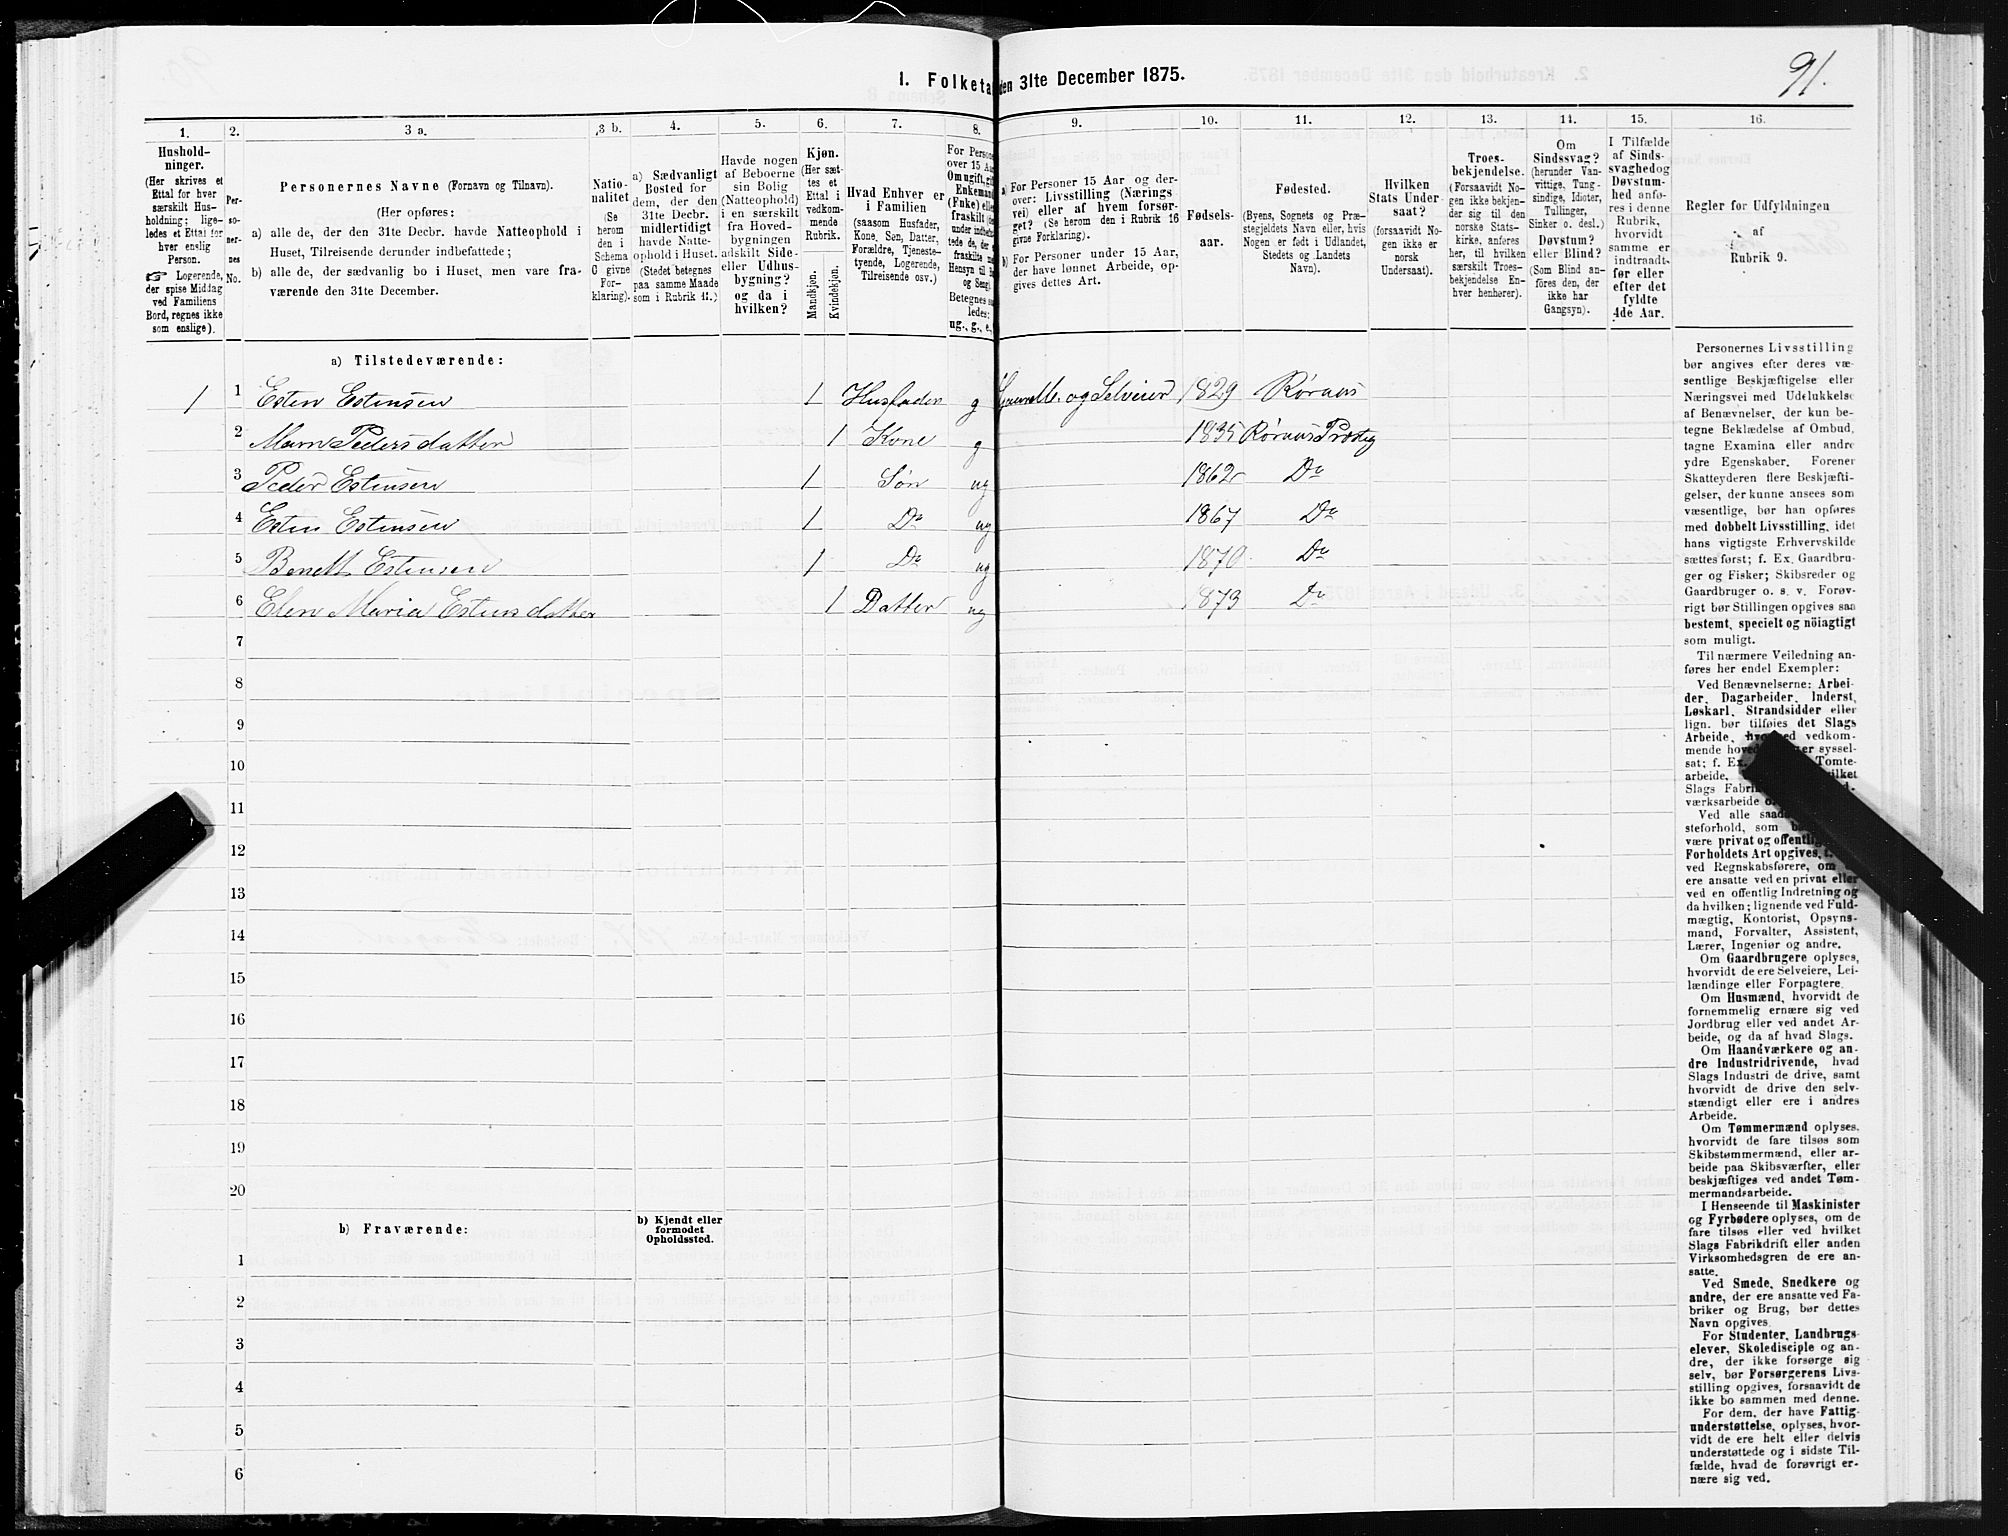 91.
1. Folketa den 31te December 1875.
1. 2. 3 a. 3 b. 4. 5. 6. 7. 8. 9. 10. 11. 12. 13. 14. 15. 16.
Hushold-
ninger.
(Her skrives et
Ettal for hver
særskilt Hus-
holdning; lige-
ledes et Ettal for
hver enslig
Person.
☞ Logerende,
der spise Middag
ved Familiens
Bord, regnes ikke
som enslige).
Per-
so-
ner-
nes
No.
Personernes Navne (Fornavn og Tilnavn).
(Her opføres:
a) alle de, der den 31te Decbr. havde Natteophold i
Huset, Tilreisende derunder indbefattede;
b) alle de, der sædvanlig bo i Huset, men vare fra-
værende den 31te December.
Natio-
nalitet
(Se
herom
den i
Schema
C givne
For-
klaring).
a) Sædvanligt
Bosted for
dem, der den
31te Decbr.
midlertidigt
havde Natte-
ophold i Huset.
(Stedet betegnes
paa samme Maade
som i Rubrik 11.)
Havde nogen
af Beboerne
sin Bolig
(Natteophold)
i en særskilt
fra Hoved-
bygningen
adskilt Side-
eller Udhus-
bygning?
og da i
hvilken?
Kjøn.
(Her sæt-
tes et
Ettal i
vedkom-
mende
Rubrik.
Mandkjøn.
Kvindekjøn.
Hvad Enhver er
i Familien
(saasom Husfader,
Kone, Søn, Datter,
Forældre, Tjeneste-
tyende, Logerende,
Tilreisende osv.)
For Persone
over 15 Aa
Om ugift, gif
Enkemand
(Enke) elle
fraskilt
Betegnes s
ledes:
ug., g., e.,
a) For Personer 15 Aar og der-
over: Livsstilling (Nærings-
vei) eller af hvem forsør-
get? (Se herom den i Rubrik 16
givne Forklaring).
b) For Personer under 15 Aar,
der have lønnet Arbeide, op-
gives dettes Art.
Fødsels-
aar.
Fødested.
(Byens, Sognets og Præ-
stegjeldets Navn eller, hvis
Nogen er født i Udlandet,
Stedets og Landets
Navn).
Hvilken
Stats Under-
saat?
(forsaavidt No-
gen ikke er
norsk
Undersaat).
Troes-
bekjendelse.
(Forsaavidt No-
gen ikke bekjen-
der sig til den
norske Stats-
kirke, anføres
her, til hvilken
særskilt Troes-
bekjendelse En-
hver henhører).
Om
Sindssvag?
(herunder Van-
vittige, Tung-
sindige, Idioter,
Tullinger,
Sinker o. desl.)
Døvstum?
eller Blind?
(Som Blind an-
føres den, der
ikke har
Gangsyn).
I Tilfælde
af Sinds-
svaghed og
Døvstum-
hed anfø-
res i denne
Rubrik,
hvorvidt
samme er
indtraadt
før eller
efter det
fyldte
4de Aar.
Regler for Udfyldningen
af
Rubrik 9.
a) Tilstedeværende:
1 1 Esten Estensen 1 Husfader g Gaardb. og Selveier 1829 Røraas
2 Marn Pedersdatter 1 Kone g 1835 Røraas Præstg
3 Peder Estensen 1 Søn ug 1862 Do
4 Esten Estensen 1 Do ug 1867 Do
5 Bendt Estensen 1 Do ug 1870 Do
6 Elen Maria Estensdatter 1 Datter ug 1873 Do
7
8
9
10
11
12
13
14
15
16
17
18
19
20
b) Fraværende:
b) Kjendt eller
formodet
Opholdssted.
1
2
3
4
5
6
Personernes Livsstilling
bør angives efter deres væ-
sentlige Beskjæftigelse eller
Næringsvei med Udelukkelse
af Benævnelser, der kun be-
tegne Beklædelse af Ombud,
tagne Examina eller andre
ydre Egenskaber. Forener
Skatteyderen flere Beskjæfti-
gelser, der kunne ansees som
væsentlige, bør han opføres
med dobbelt Livsstilling, idet
hans vigtigste Erhvervskilde
sættes først; f. Ex. Gaardbru-
ger og Fisker; Skibsreder og
Gaardbruger o. s. v. Forøv-
rigt bør Stillingen opgives saa
bestemt, specielt og nöiagtigt
som muligt.
Til nærmere Veiledning an-
føres her endel Exempler:
Ved Benævnelserne: Arbei-
der, Dagarbeider, Inderst,
Løskarl, Strandsidder eller
lign. bør tilføies det Slags
Arbeide, hvormed vedkom-
mende hoved er syssel-
sat; f. Ex. Tomte-
arbeide, hvilket
Slags Fabri
værksarbeide
Ved alle saad
steforhold, som
være privat og offentlig
Forholdets Art opgives,
ved Regnskabsførere, om
ere ansatte ved en privat eller
ved en offentlig Indretning og
da hvilken; lignende ved Fuld-
mægtig, Kontorist, Opsyns-
mand, Forvalter, Assistent,
Lærer, Ingeniør og andre.
Om Gaardbrugere oplyses,
hvorvidt de ere Selveiere, Lei-
lændinge eller Forpagtere.
Om Husmænd, hvorvidt de
fornemmelig ernære sig ved
Jordbrug eller ved andet Ar-
beide, og da af hvad Slags.
Om Haandværkere og an-
dre Industridrivende, hvad
Slags Industri de drive, samt
hvorvidt de drive den selv-
stændigt eller ere i andres
Arbeide.
Om Tømmermænd oplyses,
hvorvidt de fare tilsøs som
Skibstømmermænd, eller ar-
beide paa Skibsværfter, eller
beskjæftiges ved andet Tøm-
mermandsarbeide.
I Henseende til Maskinister
og Fyrbødere oplyses, om de
fare tilsøs eller ved hvilket
Slags Fabrikdrift eller anden
Virksomhedsgren de ere an-
satte.
Ved Smede, Snedkere og
andre, der ere ansatte ved Fa-
briker og Brug, bør dettes
Navn opgives.
For Studenter, Landbrugs-
elever, Skoledisciple og an-
dre, der ikke forsørge sig
selv, bør Forsørgerens Livs-
stilling opgives, forsaavidt de
ikke bo sammen med denne.
For dem, der have Fattig-
understøttelse, oplyses, hvor-
vidt de ere helt eller delvis
understøttede og i sidste Til-
fælde, hvad de forøvrigt er-
nære sig ved.